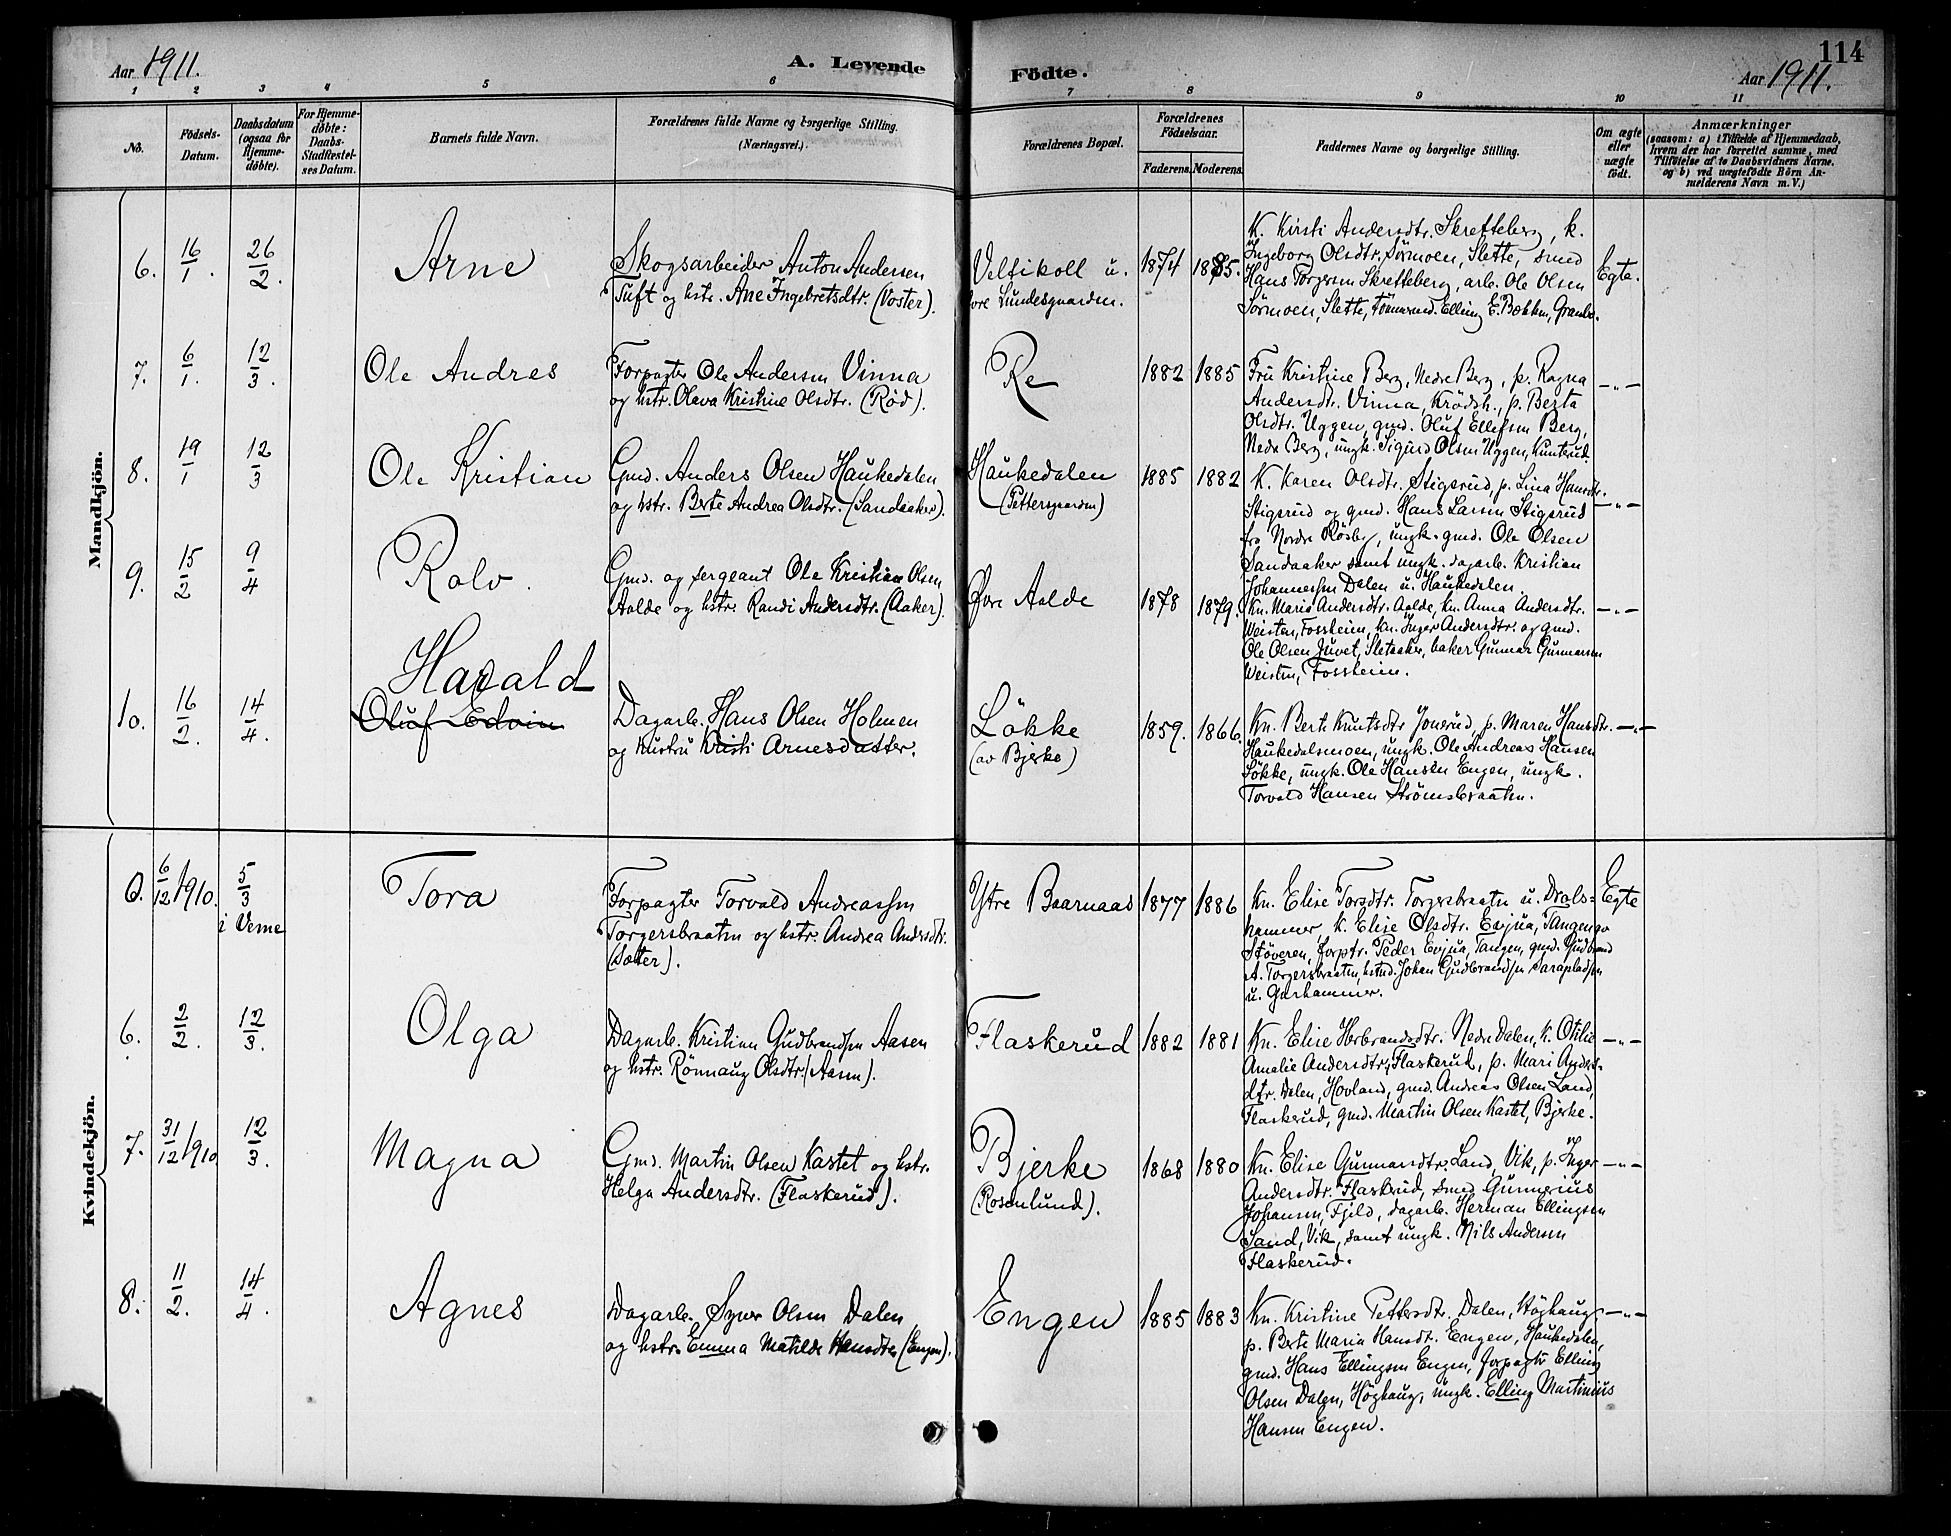 114
Aar 1911. A. Levende Födte. Aar 1911.
1 2 3 4 5 6 7 8 9 10 11
No.
Födsels-
Datum.
Daabsdatum
(ogsaa for
Hjemme-
döbte).
For Hjemme-
döbte:
Daabs-
Stadfæstel-
ses Datum.
Barnets fulde Navn.
Forældrenes fulde Navne og borgerlige Stilling.
(Næringsvei.)
Forældrenes Bopæl.
Forældrenes
Födselsaar.
Faderens. Moderens.
Faddernes Navne og borgerlige Stilling.
Om ægte
eller
uægte
födt.
Anmærkninger
(saasom: a) i Tilfælde af Hjemmedaab,
hvem der har forrettet samme, med
Tilföielse af to Daabsvidners Navne.
og b) ved uægtefödte Börn An-
melderens Navn m. V.)
Mandkjön.
6. 16/1. 26/2. Arne
Skogsarbeider Anton Andersen
Tuft og hstr. Ane Ingebretsdtr. (Voster).
Velfikoll u.
övre Lundesgaarden.
1874 1875.
K. Kirsti Andersdtr. Skretteberg, k.
Ingeborg Olsdtr. Sørmoen, Slette, smed
Hans Torgersen Skretteberg, arb. Ole Olsen
Sørmoen, Slette, tömmermd. Elling E. Bækken,
Egte.
7. 6/1. 12/3. Ole Andres
Forpagter Ole Andersen Vinna
og hstr. Olava Kristine Olsdtr. (Rød).
Re
1882 1885
Fru Kristine Berg, Nedre Berg, p. Ragna
Andersdtr. Vinna, Krødsh., p. Berta
Olsdtr. Uggen, gmd. Oluf Ellefsen Berg,
Nedre Berg, ungk. Sigurd Olsen Uggen, Knuterud.
—"—
8. 19/1 12/3 Ole Kristian
Gmd. Anders Olsen Haukedalen
og hstr. Berte Andrea Olsdtr. (Sandaaker).
Haukedalen
(Pettersgaarden)
1885 1882
K. Karen Olsdtr. Stigsrud, p. Lina Hansdtr.
Stigsrud og gmd. Hans Larsen Stigsrud
fra Nordre Røsby, ungk. gmd. Ole Olsen
Sandaaker samt ungk. dagarb. Kristian
Johannessen Dalen u. Haukedalen.
—"—
9. 15/2 9/4 Rolv.
Gmd. og sergeant Ole Kristian Olsen
Aalde og hstr. Randi Andersdtr. (Aaker).
Øvre Aalde
1878 1879.
Kn. Maria Andersdtr. Aalde, kn. Anna Andersdtr.
Weisten, Fossheim, kn. Inger Andersdtr. og gmd.
Ole Olsen Juvet, Sletaaker, baker Gunnar Gunnarsen
Weisten, Fossheim.
—"—
10. 16/2. 14/4. Harald
Oluf Edvin
Dagarb. Hans Olsen Holmen
og hustru Kristi Arnesdatter.
Løkke
(av Bjerke)
1859. 1866.
Kn. Berte Knutsdtr Jonsrud, p. Maren Hansdtr.
Haukedalsmoen, ungk. Ole Andreas Hansen
Løkke, ungk. Ole Hansen Engen, ungk.
Torvald Hansen Strømsbraaten.
—"—
Kvindekjön.
6/12 1910. 5/3 Tora
i Veme
Forpagter Torvald Andreassen
Torgersbraaten og hstr. Andrea Andersdtr.
(Sæter).
Ytre Baarnaas
1877 1886
Kn. Elise Torsdtr. Torgersbraaten u. Drols-
hammer, K. Elise Olsdtr. Evjua, Tangen
Støveren, forptr. Peder Evjua, Tangen, gmd. Gudbrand
A. Torgersbraaten, hstmd. Johan Gudbrandsen
u. Garhammer.
Egte
6. 2/2. 12/3. Olga
Dagarb. Kristian Gudbrandsen Aasen
og hstr. Rønnaug Olsdtr. (Aasen).
Flaskerud
1882 1881
Kn. Elise Herbrandsdtr. Nedre Dalen, k. Otilie
Amalie Andersdtr. Flaskerud, p. Mari Anders-
dtr. Dalen, Hovland, gmd. Andreas Olsen Land,
Flaskerud, gmd. Martin Olsen Kastet, Bjerke.
—"—
7. 31/12 1910 12/3. Magna
Gmd. Martin Olsen Kastet og hstr.
Helga Andersdtr. (Flaskerud).
Bjerke
(Rosenlund).
1868 1880
Kn. Elise Gunnarsdtr. Land, Vik, p. Inger
Andersdtr. Flaskerud, smed Gunnerius
Johansen, Fjeld, dagarb. Herman Ellingsen
Sand, Vik, samt ungk. Nils Andersen
Flaskerud.
—"—
8. 11/2. 14/4. Agnes
Dagarb. Syver Olsen Dalen
og hstr. Emma Matilde Hansdtr. (Engen).
Engen
1885 1883
Kn. Kristine Pettersdtr. Dalen, Høghaug,
p. Berte Maria Hansdt. Engen, Haukedalen,
gmd. Hans Ellingsen Engen, forpagtr Elling
Olsen Dalen, Høghaug, ungk. Elling Martinius
Hansen Engen.
—"—